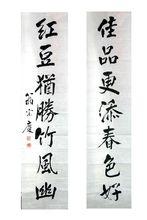 佳品更添春色好
紅豆猶勝竹風幽